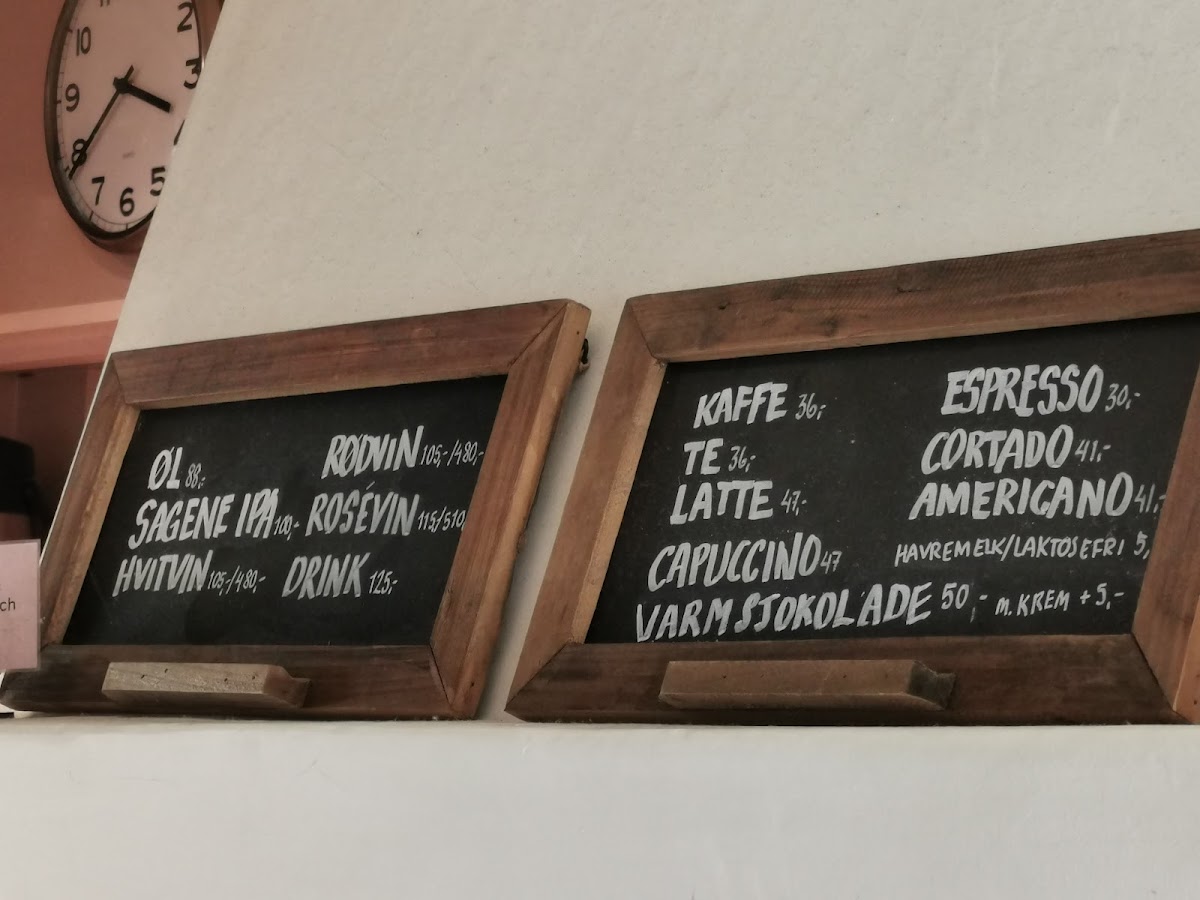 11
10
2
9
3
8
4
7
6
5
ch
ØL 88,-
SAGENE IPA 100,-
HVITVIN 105,-/480,-
RØDVIN 105,-/480,-
ROSÉVIN 115/510
DRINK 125,-
KAFFE 36,-
TE 36,-
LATTE 47,-
CAPUCCINO 47
VARM SJOKOLADE 50,- M. KREM +5,-
ESPRESSO 30,-
CORTADO 41,-
AMERICANO 41,-
HAVREMELK/LAKTOSEFRI 5,